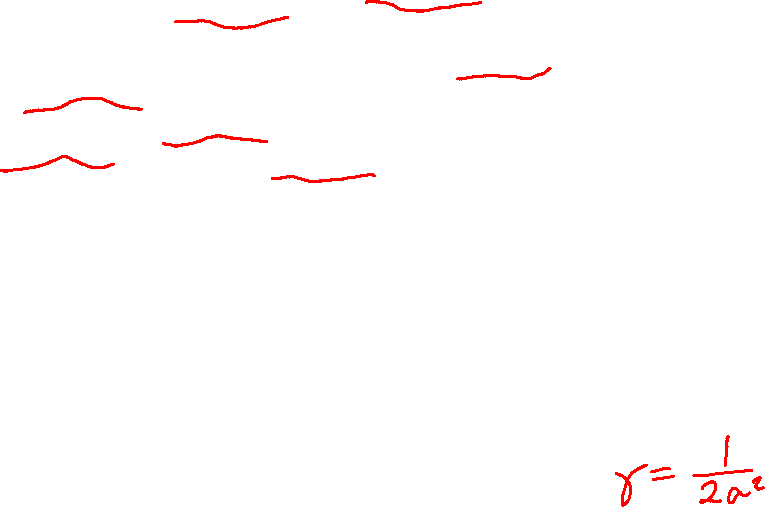 γ = 1/2a²